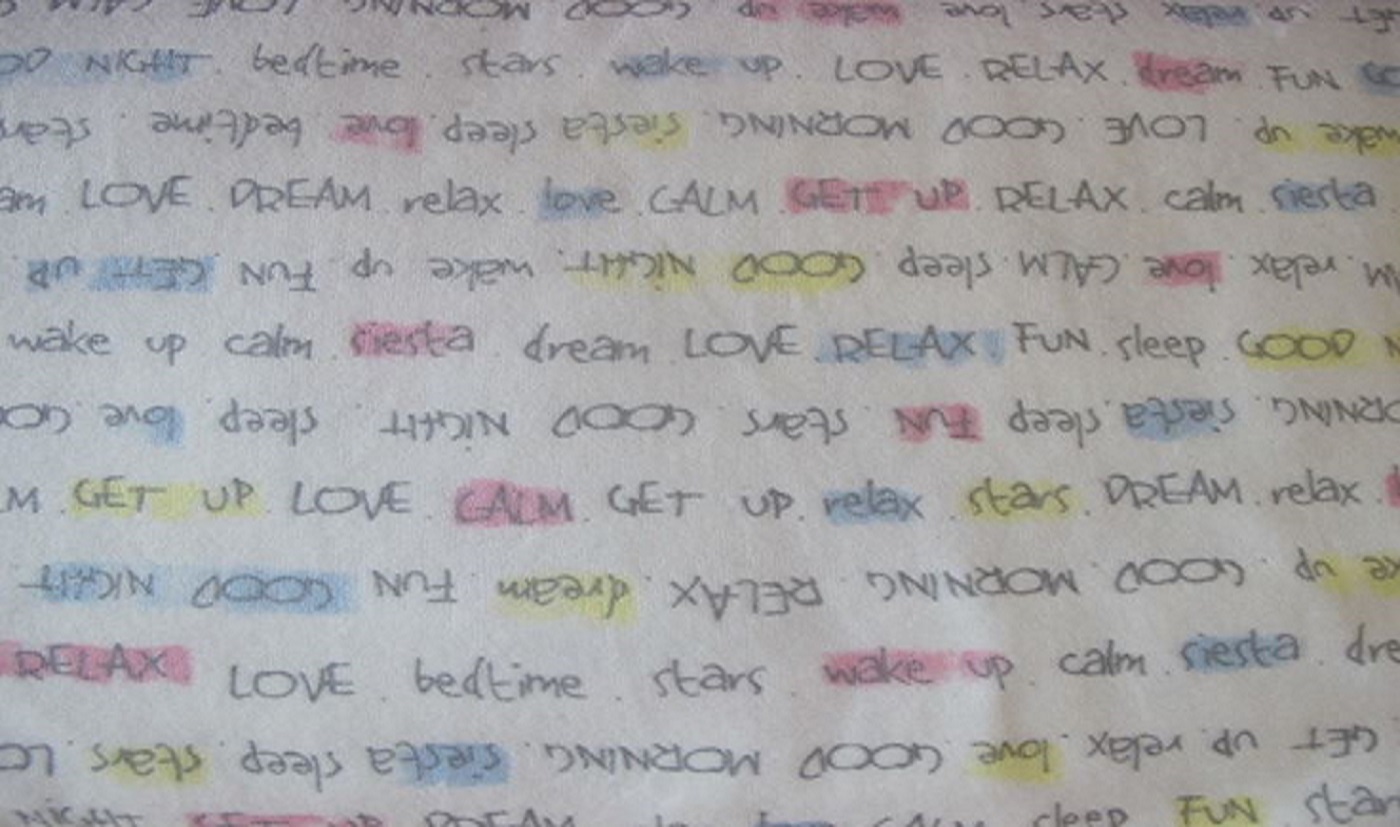 GET up relax stars love wake up GOOD MORNING LOVE CALM
OD NIGHT . bedtime . stars . wake up . LOVE . RELAX . dream . FUN
wake up . LOVE . GOOD MORNING . siesta sleep love bedtime . stars
am . LOVE . DREAM . relax . love . CALM . GET UP . RELAX . calm . siesta
M . relax love CALM sleep GOOD NIGHT . wake up FUN GET UP
wake up calm . siesta . dream LOVE RELAX . FUN . sleep . GOOD N
RNING . siesta . sleep FUN . stars . GOOD NIGHT . sleep . love GO
M . GET UP . LOVE . CALM . GET UP . relax . stars . DREAM . relax .
ke up . GOOD MORNING . RELAX . dream . FUN GOOD NIGHT
RELAX LOVE . bedtime . stars . wake up . calm . siesta . dre
GET up relax . love . GOOD MORNING . siesta sleep stars . LO
NIGHT GET UP DREAM CALM sleep FUN star